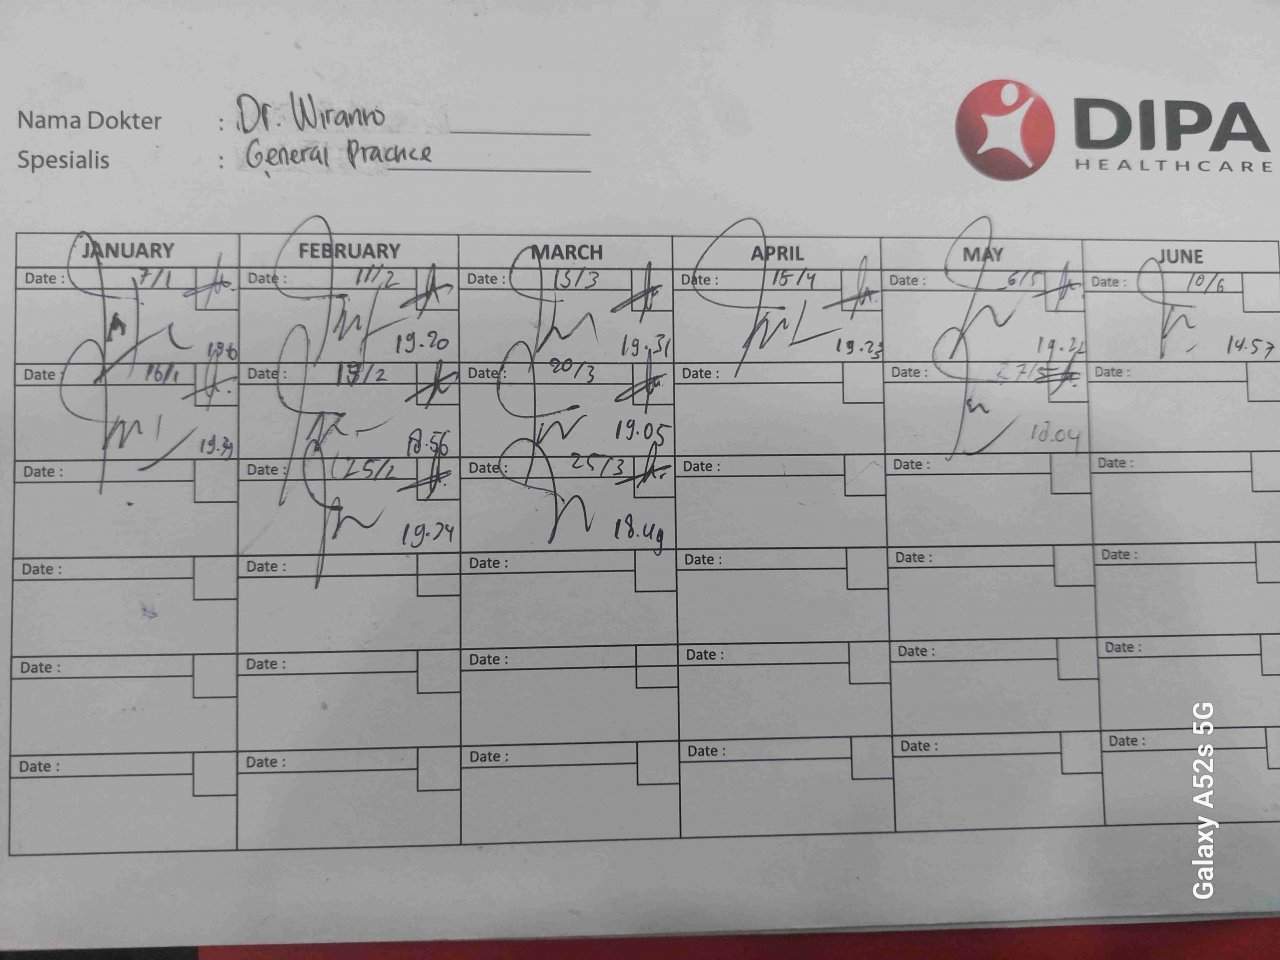 Nama Dokter : Dr. Wiranro
Spesialis : General Practice
DIPA
HEALTHCARE
JANUARY FEBRUARY MARCH APRIL MAY JUNE
Date : 7/1 Date : 11/2 Date : 13/3 Date : 15/4 Date : 6/5 Date : 10/6
19.20 19.31 19.23 19.22 14.57
Date : 16/1 Date : /2 Date : 20/3 Date : Date : 27/5 Date :
19.39 18.56 19.05 18.04
Date : Date : 25/2 Date : 25/3 Date : Date : Date :
19.24 18.49
Date : Date : Date : Date : Date : Date :
Date : Date : Date : Date : Date : Date :
Date : Date : Date : Date : Date : Date :
Galaxy A52s 5G